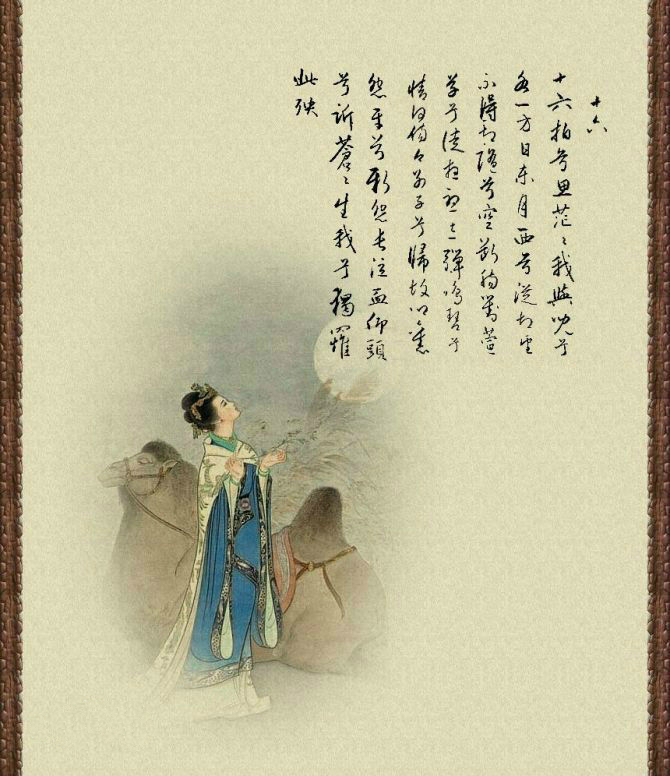 十六
十六拍兮思茫〻我與兒兮
各一方日東月西兮徒相望
不得相隨兮空斷腸對萱
草兮徒想憂忘彈鳴琴兮
情何傷今別子兮歸故鄉舊
怨平兮新怨長泣血仰頭
兮訴蒼〻生我兮獨罹
此殃